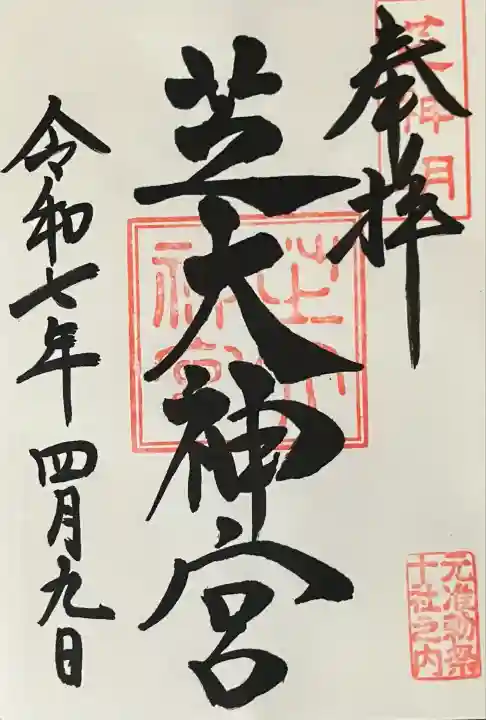 奉拝
芝神明
芝大神宮
芝大神宮
令和七年四月九日
元准勅祭
十社之内